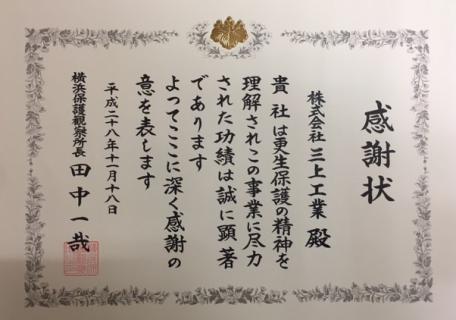 感謝状
株式会社 三上工業 殿
貴社は更生保護の精神を
理解されこの事業に尽力
された功績は誠に顕著
であります
よってここに深く感謝の
意を表します
平成二十八年十一月十八日
横浜保護観察所長 田中一哉